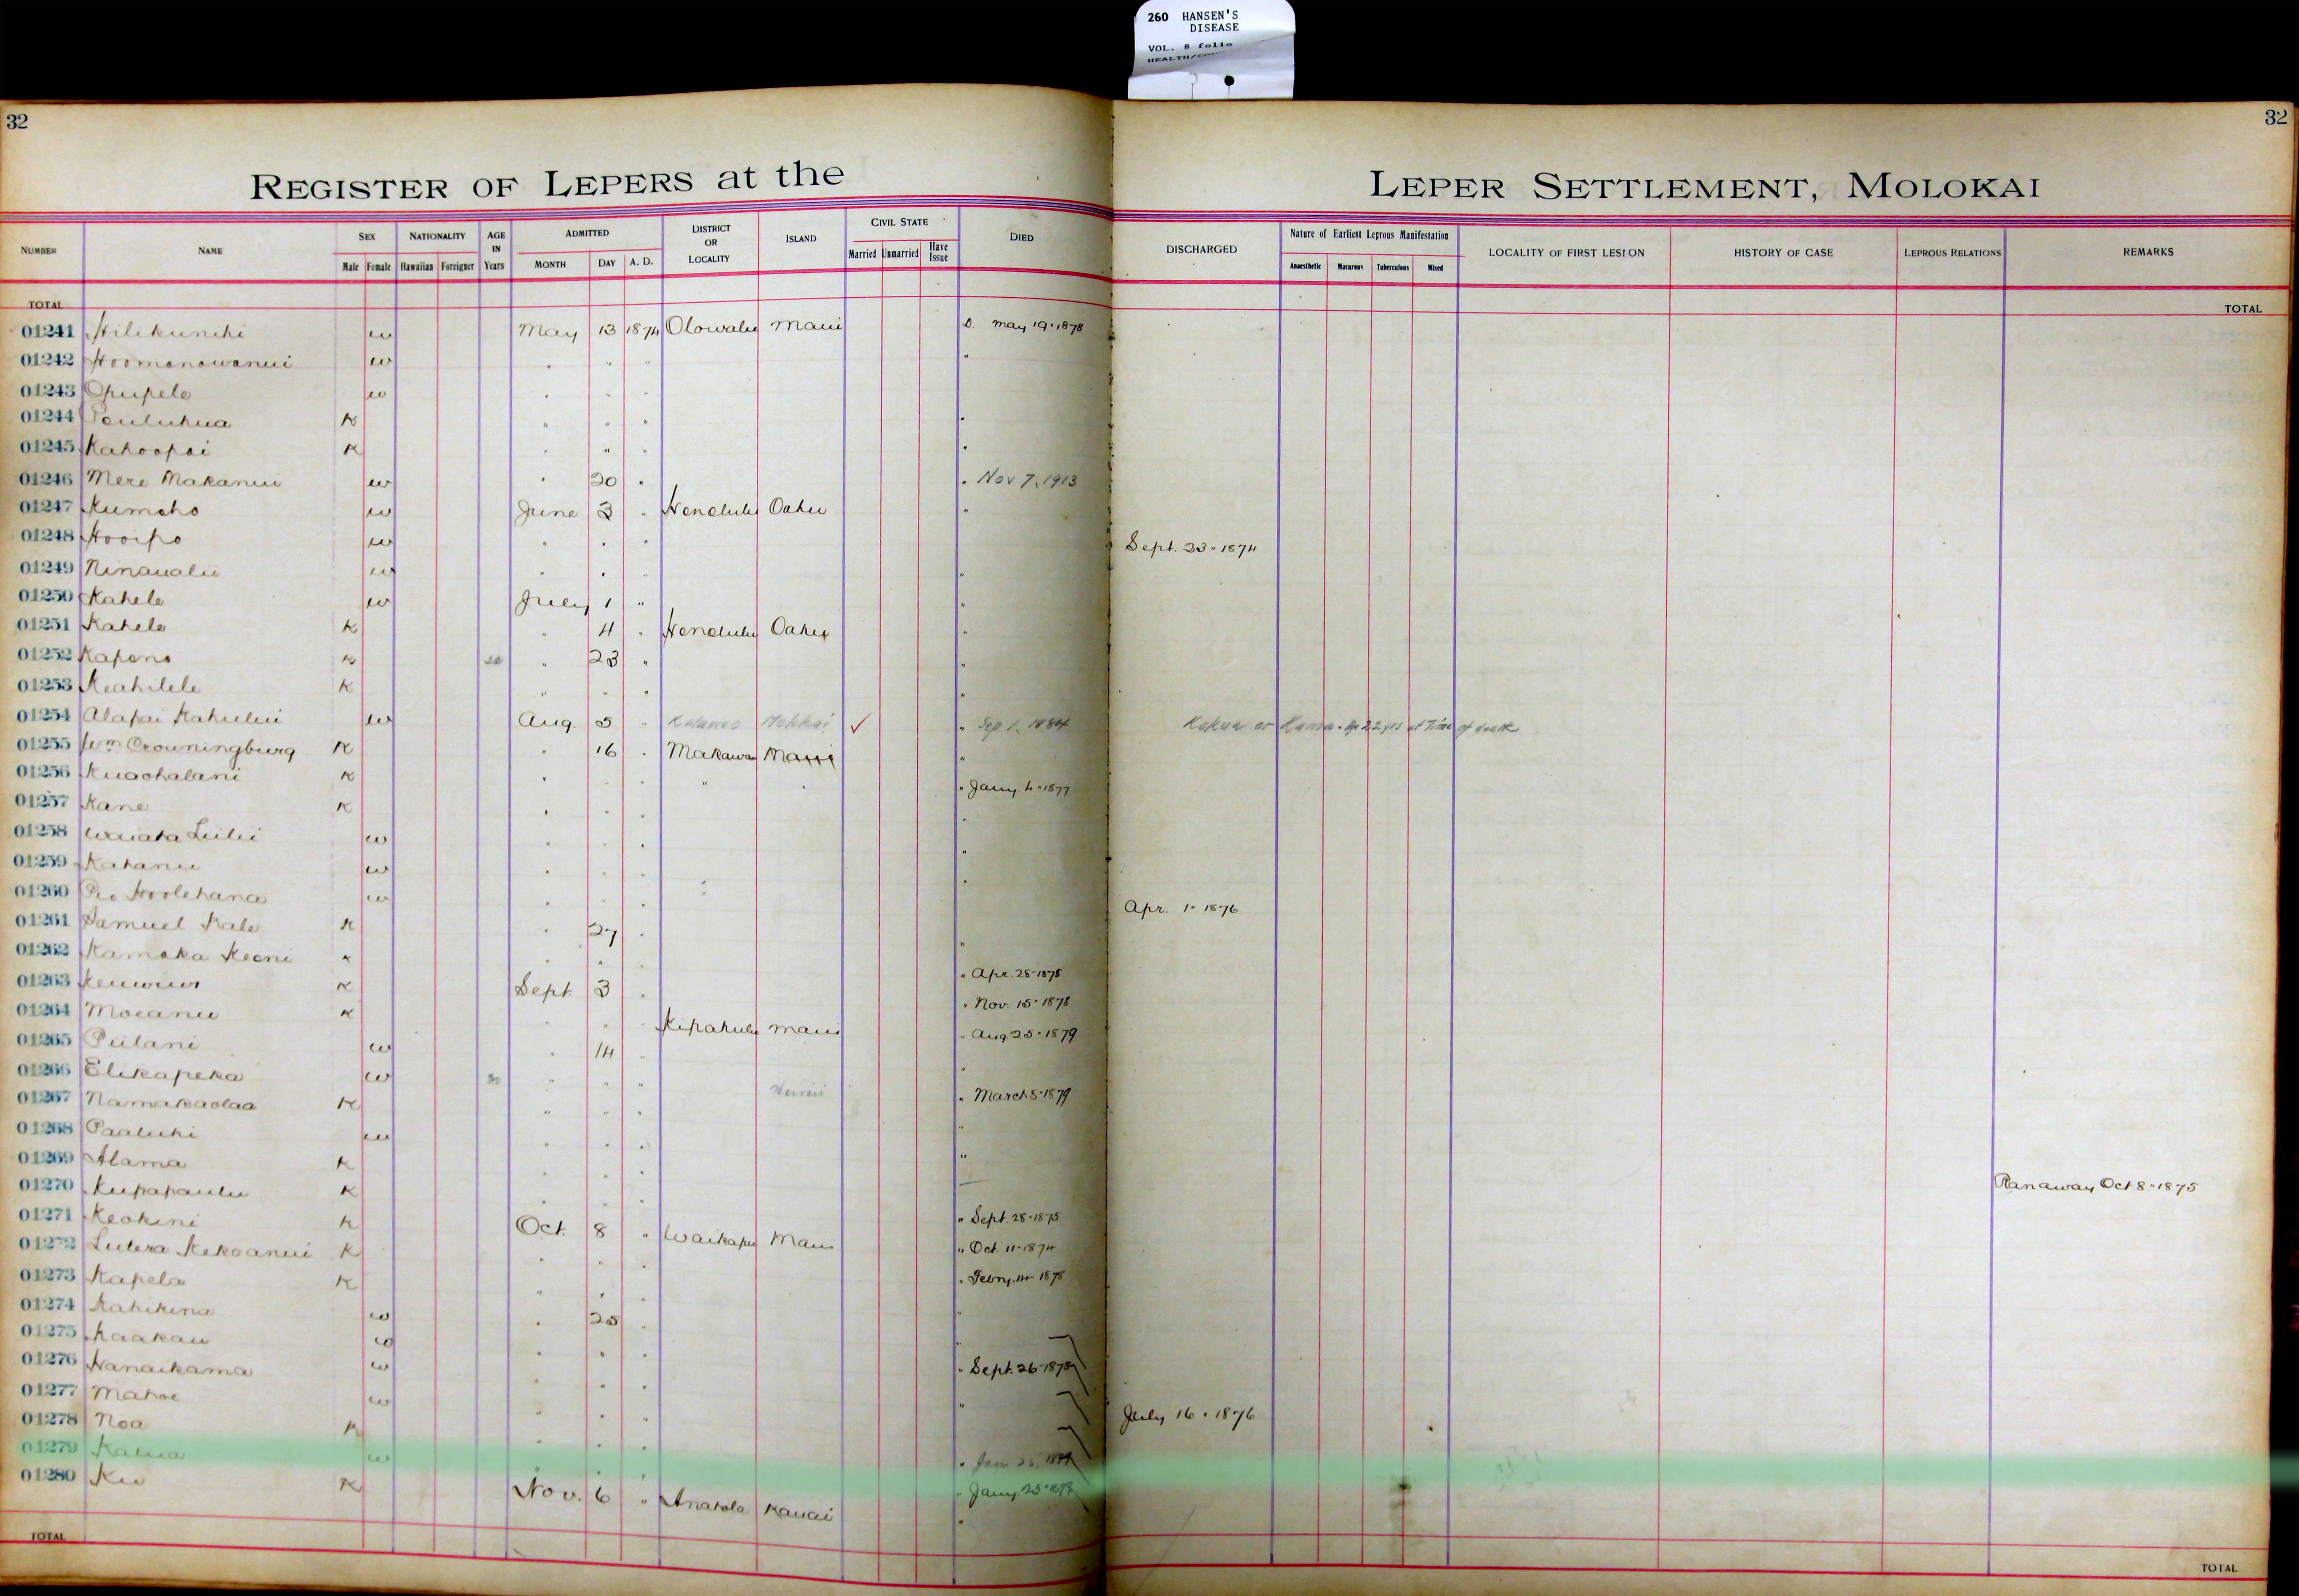 260 HANSEN'S
DISEASE
VOL. 8 folio
32
32
REGISTER OF LEPERS at the LEPER SETTLEMENT, MOLOKAI
NUMBER NAME SEX NATIONALITY AGE IN Years ADMITTED DISTRICT OR LOCALITY ISLAND CIVIL STATE DIED DISCHARGED Nature of Earliest Leprous Manifestation LOCALITY OF FIRST LESION HISTORY OF CASE LEPROUS RELATIONS REMARKS
Male Female Hawaiian Foreigner MONTH DAY A. D. Married Unmarried Have Issue Anaesthetic Macurous Tuberculous Mixed
TOTAL TOTAL
01241 Hilikunihi w May 13 1874 Olowalu Maui D. May 19 1878
01242 Hoomanawanui w " " " "
01243 Opupele w " " "
01244 K " " " "
01245 Kahoopai K " " " "
01246 Mere Makanui w " 20 " " Nov 7, 1913
01247 Kumeho w June 3 " Honolulu Oahu "
01248 Hooipo w " " " Sept. 23 1874
01249 Ninaualii w " " " "
01250 Kahele w July 1 " "
01251 Kahele K " 4 " Honolulu Oahu "
01252 Kapena K " 23 " "
01253 Keahilele K " " " "
01254 Alapai Kahului w Aug. 5 " Kalawao Molokai ✓ " Sep 1, 1884 Kokua or Kamaa. Age 22 yrs at Time of death
01255 Wm Crowningburg K " 16 " Makawao Maui "
01256 Kuaohalani K " " " " " " Jany 4 1877
01257 Kane K " " " "
01258 Waiaka Liilii w " " " "
01259 Kahanu w " " " "
01260 Hoolehana w " " " Apr. 1 1876
01261 Samuel Kale K " 27 " "
01262 Kamaka Keoni K " " " " Apr. 28 1878
01263 K Sept 3 " " Nov. 15 1878
01264 Moeanu K " " " Kipahulu Maui " Aug 25 1879
01265 Piilani w " 14 " "
01266 Elikapeka w 30 " " " Hawaii " March 8 1879
01267 Namakaolaa K " " " "
01268 Paaluhi w " " " "
01269 Alama K " " "
01270 Kupapaulu K " " " Ranaway Oct 8 1875
01271 Keokini K Oct. 8 " Waikapu Maui " Sept. 28 1875
01272 Lutera Kekoanui K " " " " Oct. 11 1874
01273 Kapela K " " " " Febry. 14 1878
01274 Kahikina w " 25 " "
01275 Kaakau w " " " "
01276 Nanaikama w " " " " Sept. 26 1878
01277 Mahoe w " " " "
01278 Noa K " " " July 16 1876
01279 Kalua w " Jan 25,
01280 Ku K Nov. 6 " Anahola Kauai " Jany 25
TOTAL TOTAL